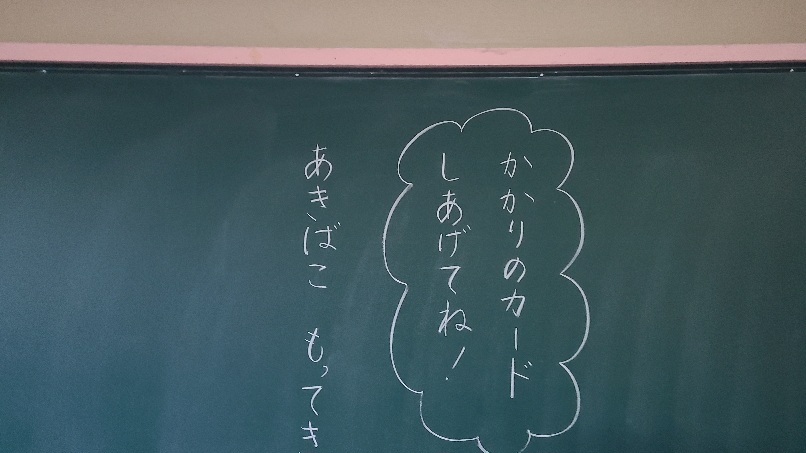 かかりのカード
しあげてね!
あきばこ もってき